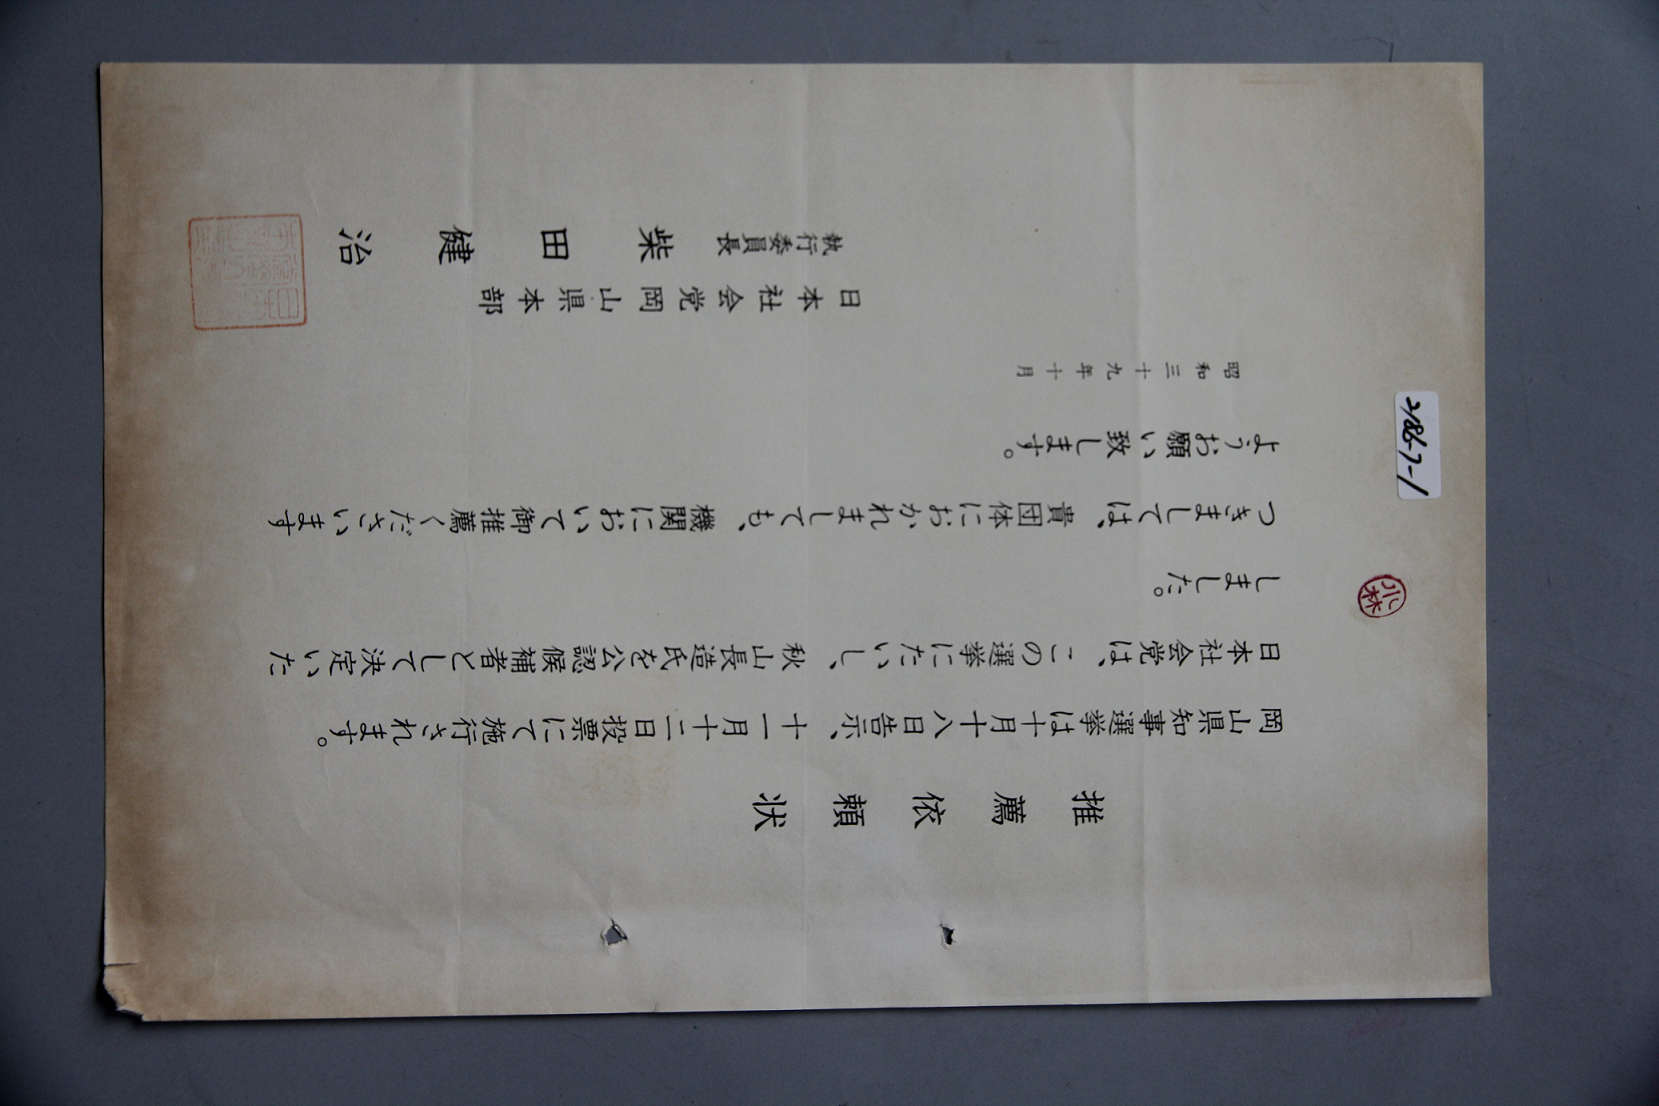 推薦依頼状
岡山県知事選挙は十月十八日告示、十一月十二日投票にて施行されます。
日本社会党は、この選挙にたいし、秋山長造氏を公認候補者として決定いた
しました。
つきましては、貴団体におかれましても、機関において御推薦くださいます
ようお願い致します。
昭和三十九年十月
日本社会党岡山県本部
執行委員長 柴田健治
小林